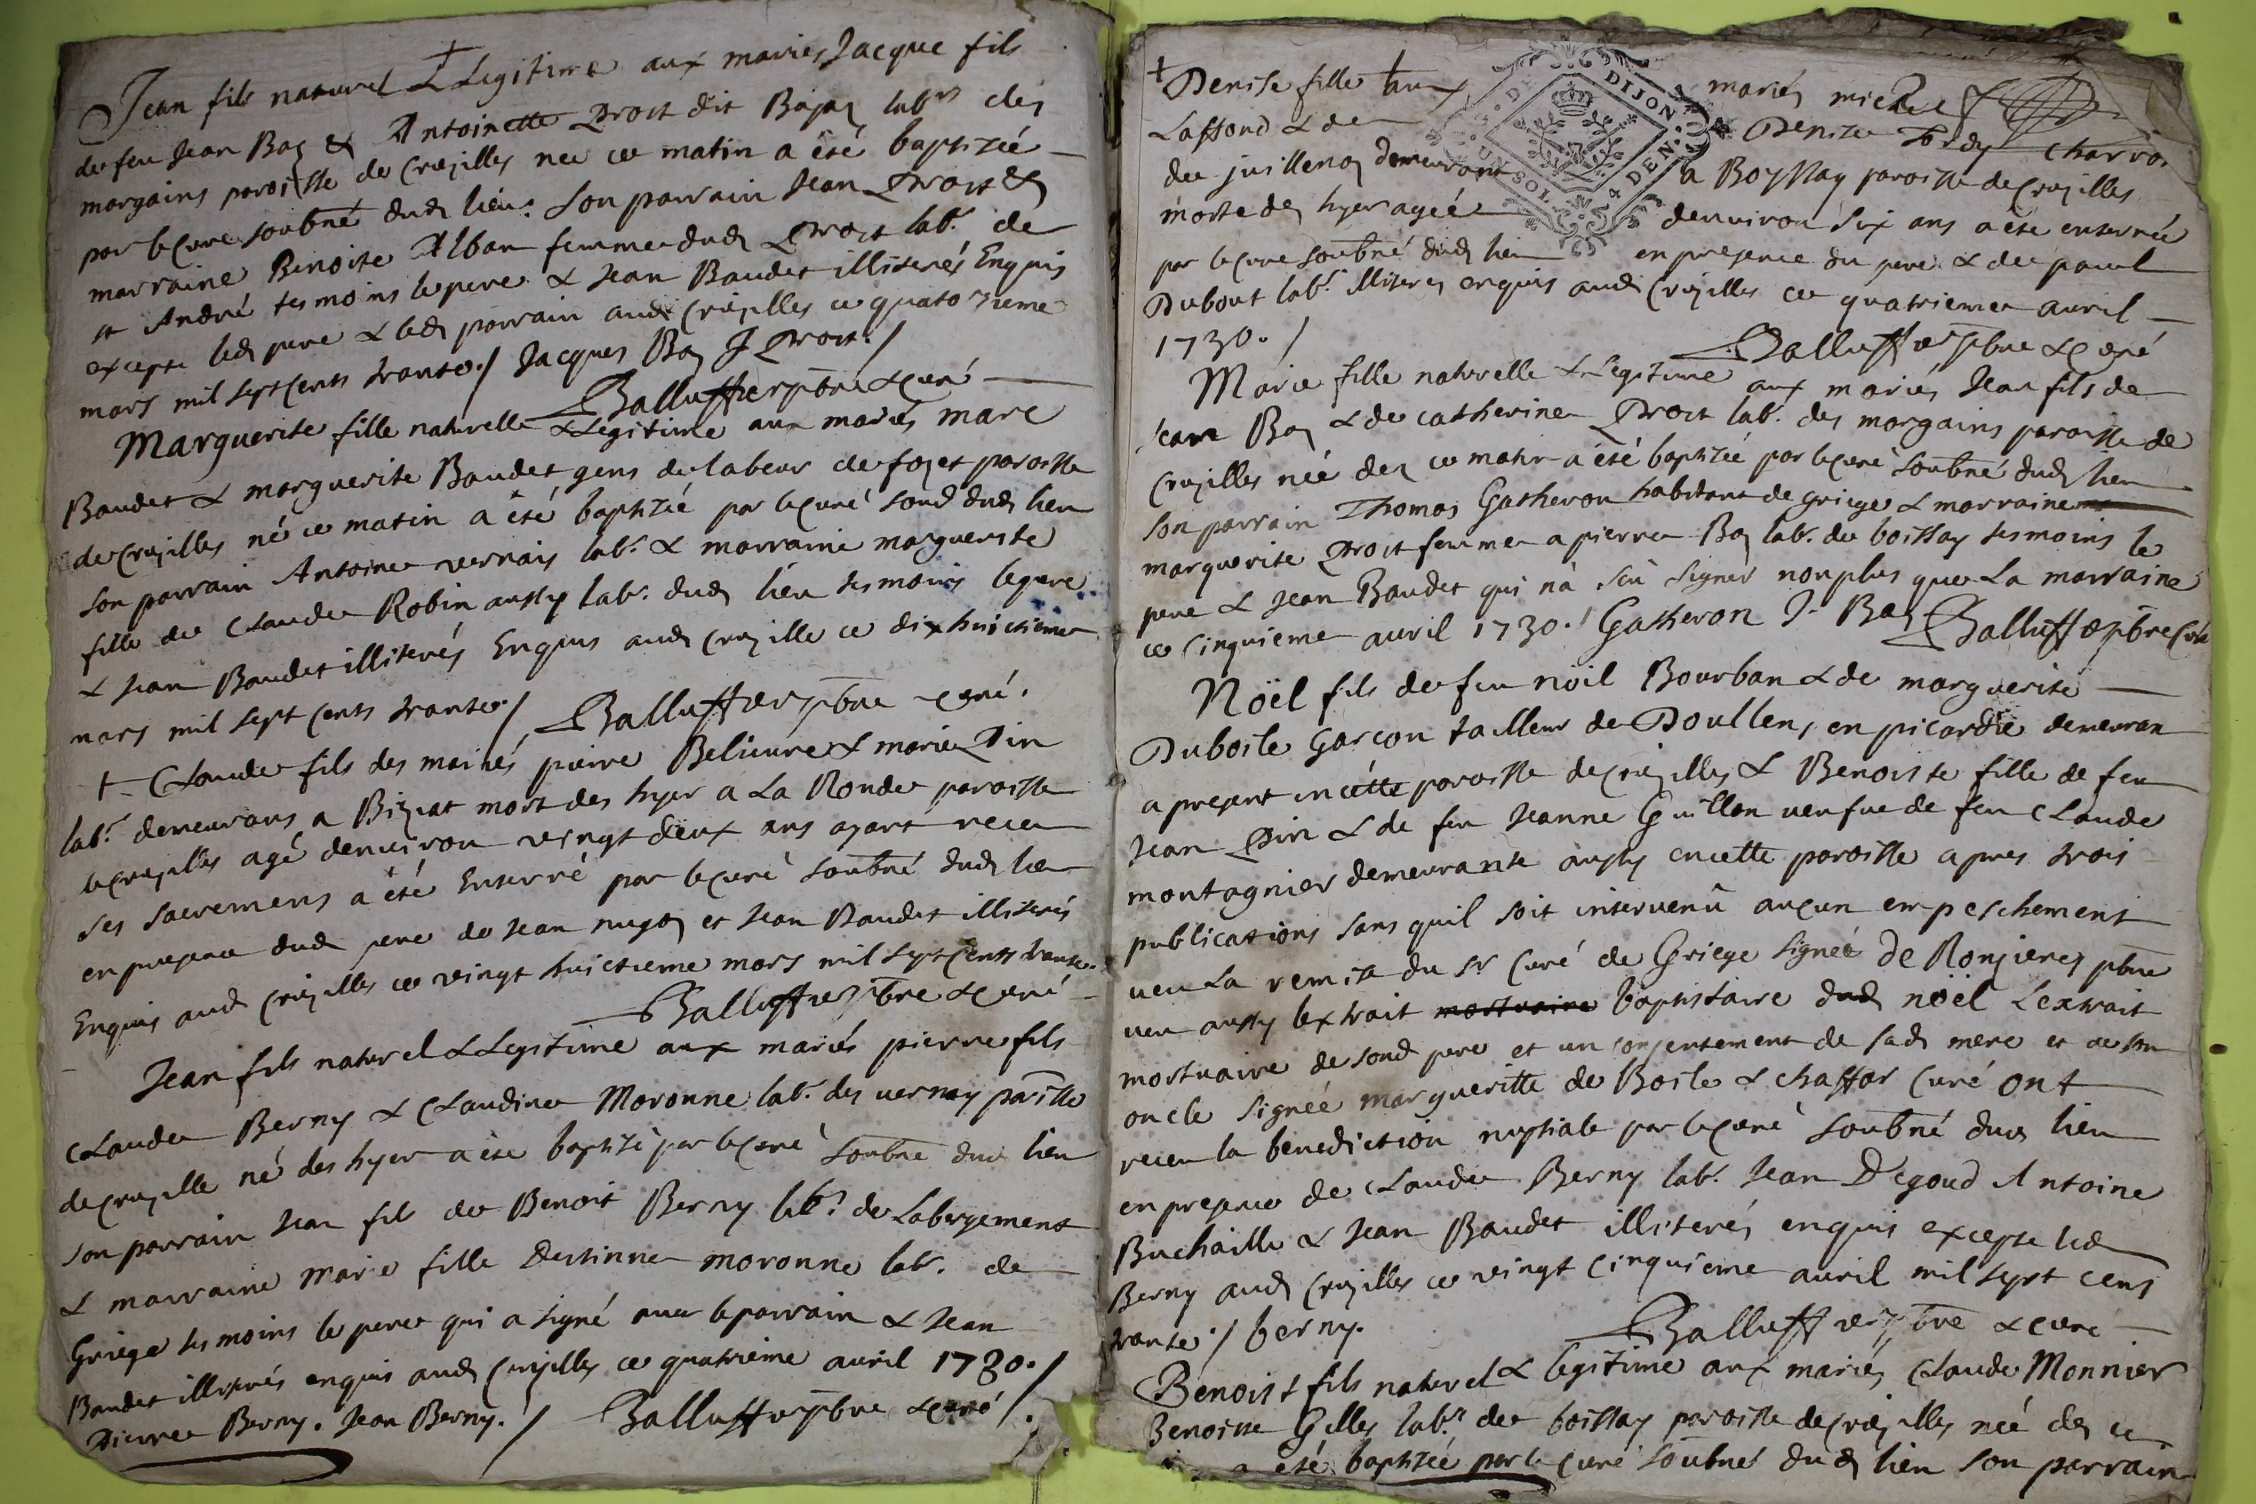 Jean fils naturel & Legitime aux mariés Jacque fils
de feu Jean Bay & Antoinette Droit dit Bajay labrs des
margains paroisse de Crujilles nee ce matin a été baptizée
par le Curé soubné dud lieu. Son parrain Jean Droit &
marraine Benoite Alban femme dud Droit labr. de
st André tesmoins le pere & Jean Baudet illiterés Enquis
excepte led pere & led parrain aud Crujilles ce quatorzieme
mars mil sept cents trante ./ Jacques Bay J Droit. /
Balluffier pbre & curé
Marguerite fille naturelle & Legitime aux mariés marc
Baudet & marguerite Baudet gens de labeur de foyet paroisse
de Crujilles né ce matin a été baptizé par le Curé soud dud lieu
son parrain Antoine vernais labr. & marraine marguerite
fille de Claude Robin aussy labr. dud lieu tesmoins le pere
& Jean Baudet illiterés Enquis aud Crujille ce dixhuictieme
mars mil sept cents trante ./ Balluffier pbre curé.
+ Claude fils des mariés pierre Belieuvre & marie Pin
labr. demeurans a Biziat mort des hyer a La Ronde paroisse
de Crujilles agé denviron vingt deux ans ayant receu
ses sacremens a été Enterré par le Curé soubné dud lieu
en presence dud pere de Jean et Jean Baudet illiterés
Enquis aud Crujilles ce vingt huictieme mars mil sept cents trante.
Balluffier pbre & curé
Jean fils naturel & Legitime aux mariés pierre fils
Claude Berny & Claudine Moronne labr. des vernay paroisse
de Crujille né des hyer a été baptisé par le Curé soubné dud lieu
son parrain Jean fils de Benoit Berny labr. de Labergement
& marraine Marie fille Destinne moronne labr. de
Griege tesmoins le pere qui a signé avec le parrain & Jean
Baudet illiterés enquis aud Crujilles ce quatrieme avril 1730. /
Pierre Berny. Jean Berny. / Balluffier pbre & curé /.
+ Denise fille aux mariés michel
Laffond & de Denise Tardy charron
de juillenay demeurant a Boissay paroisse de Crujilles
morte des hyer agée denviron six ans a été enterrée
par le Curé soubné dud lieu en presence du pere & de paul
Dubout labr. illiterés enquis aud Crujilles ce quatrieme avril
1730. /
Balluffier pbre & curé
Marie fille naturelle & Legitime aux mariés Jean fils de
Jean Bay & de catherine Droit labr. des margains paroisse de
Crujilles née des ce matin a été baptizée par le Curé soubné dud lieu
son parrain Thomas Gatheron habitant de griege & marraine
marguerite Droit femme a pierre Bay labr. de boissay tesmoins le
pere & Jean Baudet qui na sçu signer nonplus que La marraine
ce Cinquieme avril 1730. / Gatheron J. Bay Balluffier pbre Curé
Noël fils de feu nöil Bourban & de marguerite
Duboile Garçon tailleur de Doullens en picardie demeuran
apresent en cette paroisse de Crujilles & Benoiste fille de feu
Jean Pin & de feu Jeanne Guillon veufve de feu Claude
montagnier demeurante aussy en cette paroisse apres trois
publications sans quil soit intervenu auçun empeschement
veu La remise du sr Curé de Griege signée de Ronjieres pbre
veu aussy lextrait mortuaire baptistaire dud nöel Lextrait
mortuaire de sond pere et un consentement de sad mere et de son
oncle signée margueritte de Boile & chaffar Curé ont
receu la benediction nuptiale par le Curé soubné dud lieu
en presence de Claude Berny labr. Jean Degoud Antoine
Buchaille & Jean Baudet illiterés enquis excepte led
Berny aud Crujilles ce vingt Cinquieme avril mil sept cens
trante. / berny.
Balluffier pbre & curé
Benoist fils naturel & legitime aux mariés Claude Monnier
Benoitte Gelles labrs de boissay paroisse de Crujilles née des ce
a été baptizée par le Curé soubné dud lieu son parrain
DIJON
UN SOL 4 DEN.